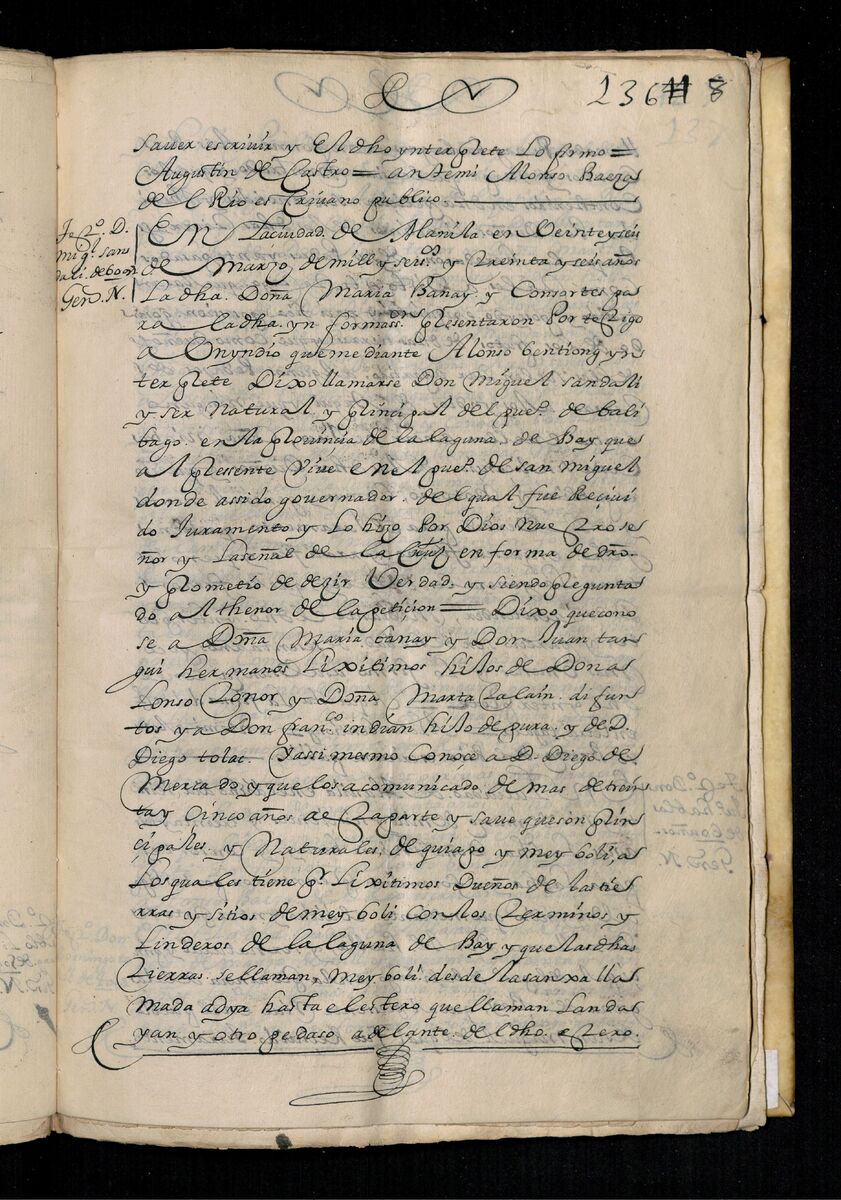 136 8
saver escrivir y El dho ynterplete Lo firmo =
Augustin de Castro = antemi Alonso Baeza
de l Rio es Crivano publico.
Te Zº. D.
Migl. san
dali. de 60 a
Gerd. N.
En Laciudad de Manila en Veinte y seis
de Marzo de mill y seisº. y Treinta y seis años
La dha. Doña Maria Banay y Consortes pa
ra la dha. yn formasson. plesentaron Por te Zigo
a Onyndio que mediante Alonso bentiong yn
ter plete Dixo llamarse Don Miguel sandali
y ser Natural y plincipal del pueº. de bali
bago. en la plovincia de la laguna de Bay que
al plessente Vive en el pueº. de san Miguel
donde assido governador. del qual fue Recivi
do Juramento y Lo hizo Por Dios Nue Zro se
ñor y La señal de la Cruz en forma de dro.
y plometio de dezir Verdad. y siendo plegunta
do al thenor de la peticion = Dixo, que cono
se a Doña Maria banay y Don Juan tan
gui hermanos Lixitimos hijos de Don a
Lonso Zonor y Doña Marta Zalain. difun
tos y a Don franco. indian hijo de pura. y de D.
Diego tolac. Yassi mesmo Conoce a D. Diego de
Mercado y que los a comunicado de mas de trein
ta y Cinco años ae Zaparte y save que son plin
cipales y Naturales. de quiapo y mey boli, a
Los quales tiene pr. Lixitimos Dueños de las tie
rras y sitios de mey boli con los Terminos y
Linderos de la laguna de Bay y que las dhas
Tierras. se llaman, mey boli desde la sanxa lla
mada adya hasta el estero que llaman Landas
yan y otro pedaso adelante. del dho. e Zero.